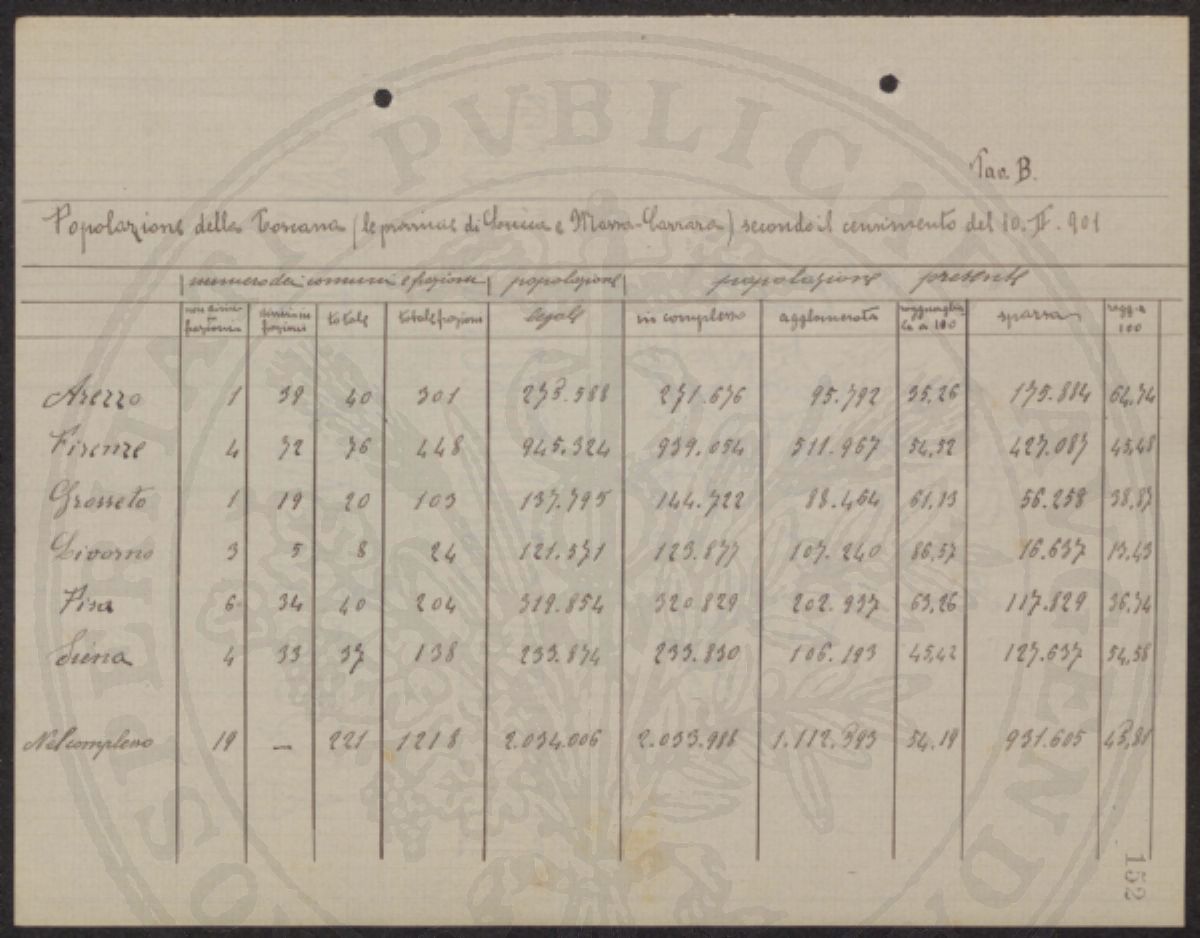 Tav. B.
Popolazione della Toscana (le provincie di Lucca e Massa-Carrara) secondo il censimento del 10. II. 901
numero dei comuni e frazioni popolazione popolazione presente
non divisi in frazioni divisi in frazioni totale totale frazioni legale in complesso agglomerata ragguagliata a 100 sparsa ragg. a 100
Arezzo 1 39 40 301 273.588 271.676 95.792 35,26 175.884 64,74
Firenze 4 72 76 448 945.324 939.054 511.967 54,52 427.087 45,48
Grosseto 1 19 20 103 137.795 144.722 88.464 61,13 56.258 38,87
Livorno 3 5 8 24 121.571 123.877 107.240 86,57 16.637 13,43
Pisa 6 34 40 204 319.854 320.829 202.937 63,26 117.829 36,74
Siena 4 33 37 138 233.874 233.830 106.193 45,42 127.637 54,58
Nel complesso 19 — 221 1218 2.034.006 2.033.988 1.112.393 54,19 931.605 43,81
152
PVBLICAE